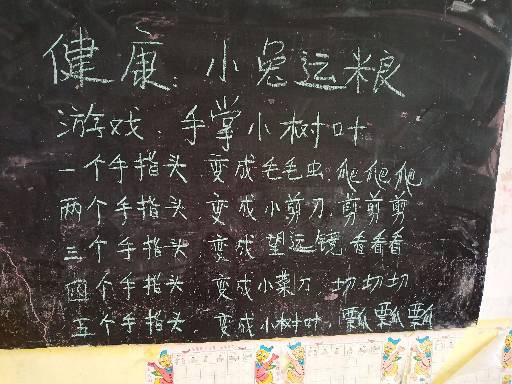 健康:小兔运粮
游戏:手掌小树叶
一个手指头 变成毛毛虫 爬爬爬
两个手指头 变成小剪刀 剪剪剪
三个手指头 变成望远镜 看看看
四个手指头 变成小菜刀 切切切
五个手指头 变成小树叶 飘飘飘